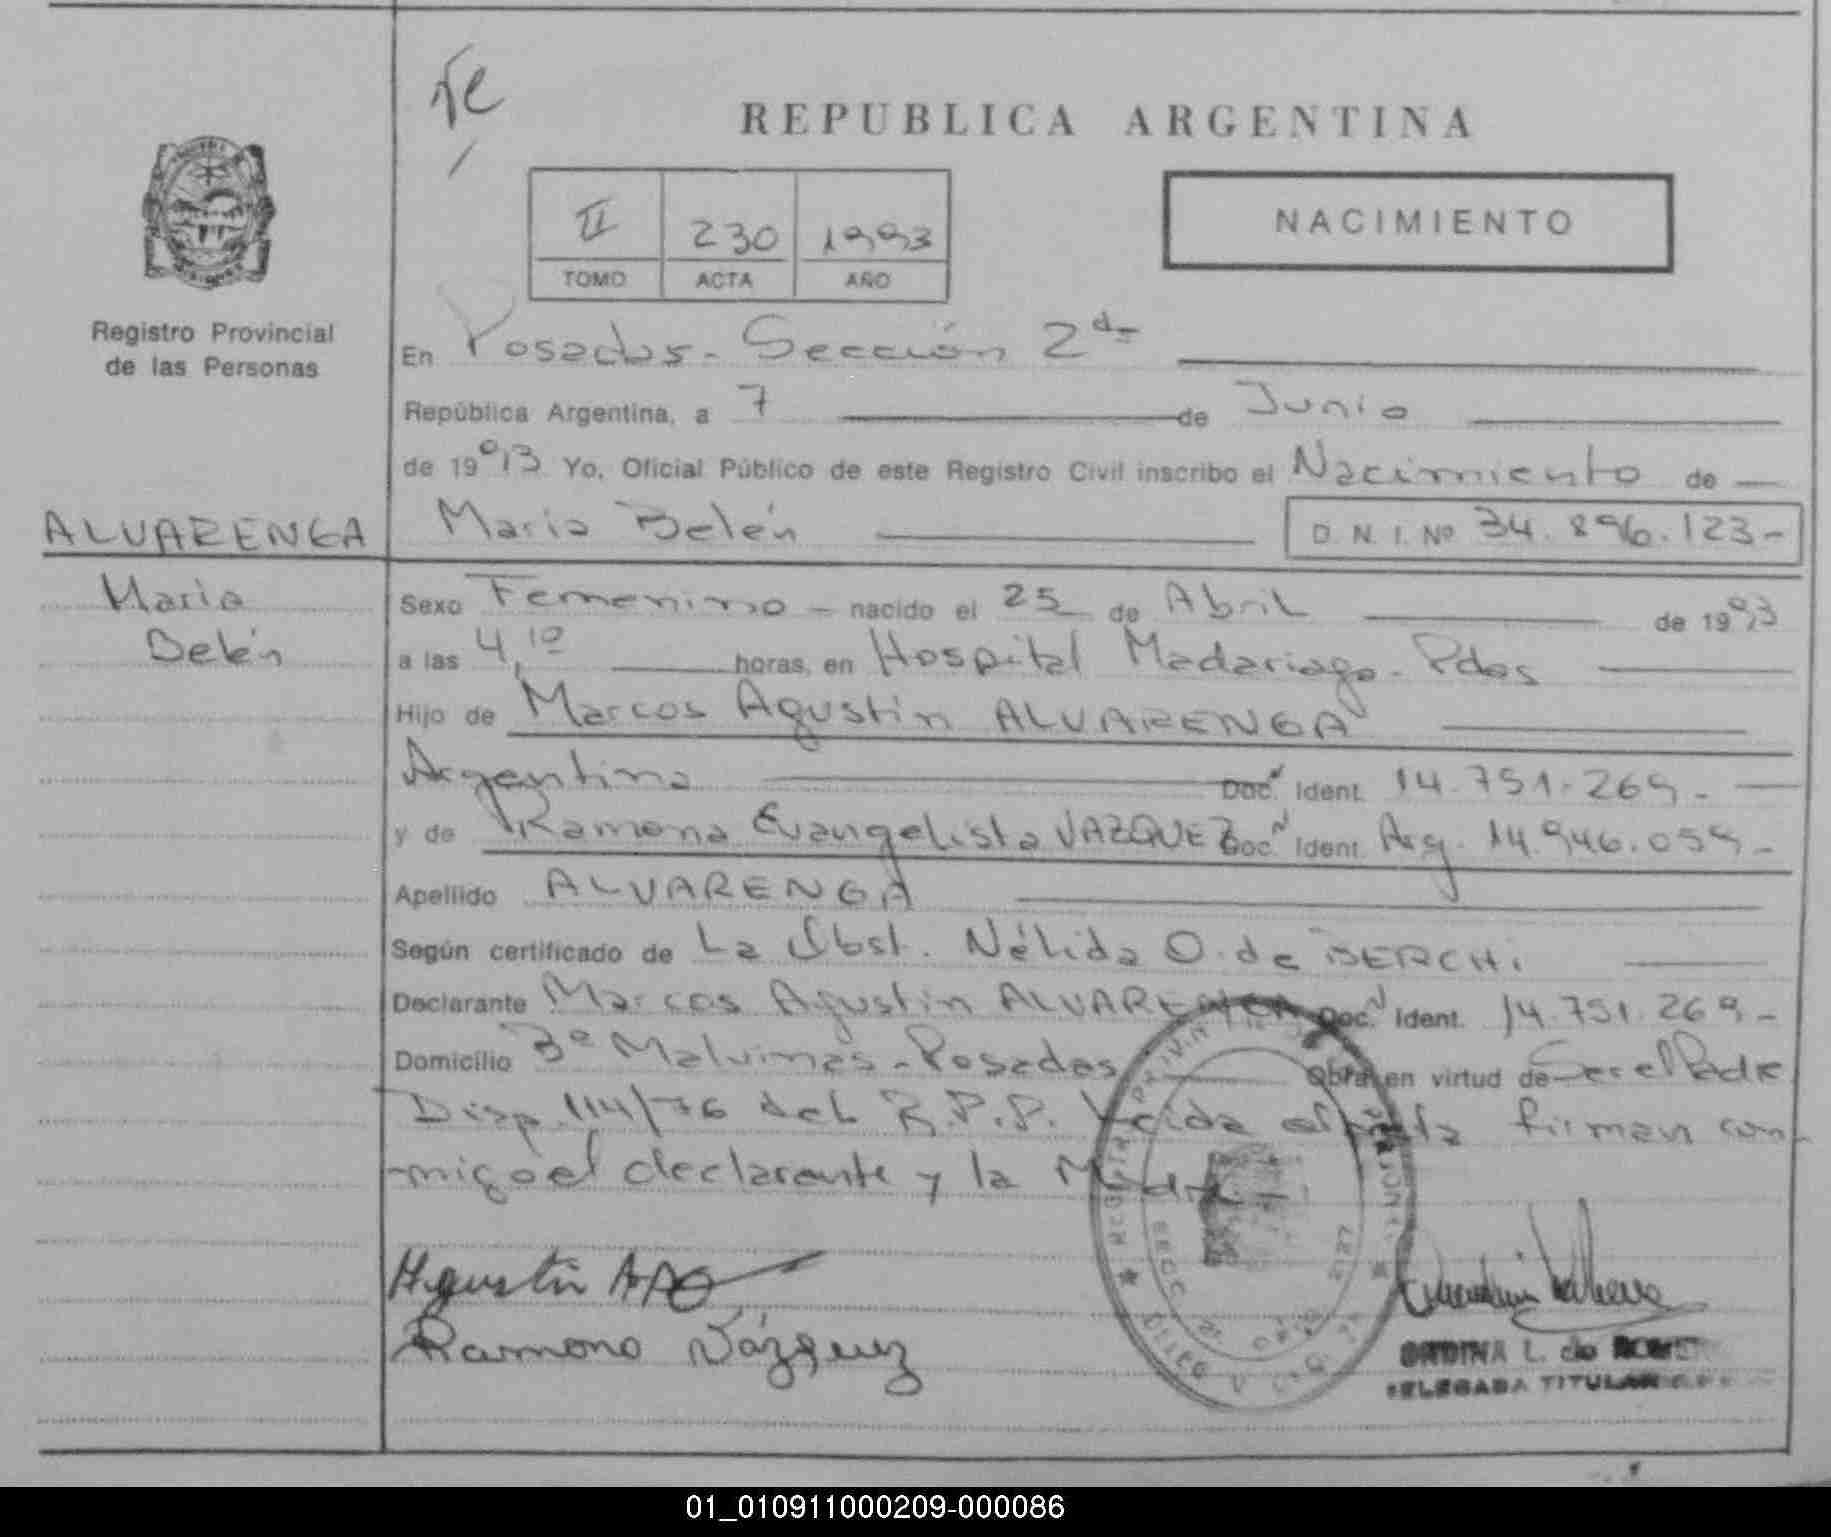 Te
REPUBLICA ARGENTINA
II 230 1993
TOMO ACTA AÑO
NACIMIENTO
Registro Provincial
de las Personas
En Posadas - Sección 2da
República Argentina, a 7 de Junio
de 1993 Yo, Oficial Público de este Registro Civil inscribo el Nacimiento de
ALVARENGA María Belén D. N. I. Nº 34.896.123-
María
Belén
Sexo Femenino - nacido el 25 de Abril de 1993
a las 4,10 horas, en Hospital Madariaga - Pdas
Hijo de Marcos Agustín ALVARENGA
Argentina Doc. Ident. 14.751.269-
y de Ramona Evangelista VAZQUEZ Doc. Ident. Arg. 14.946.059-
Apellido ALVARENGA
Según certificado de La Obst. Nélida O. de BERCHI
Declarante Marcos Agustín ALVARENGA Doc. Ident. 14.751.269-
Domicilio Bº Malvinas - Posadas Obra en virtud de Ser el Padre
Disp. 114/76 del R.P.P. Leida el acta firman con-
migo el declarante y la Madre.-
Agustín
Ramona Vázquez
L. de
DELEGADA TITULAR
01_010911000209-000086